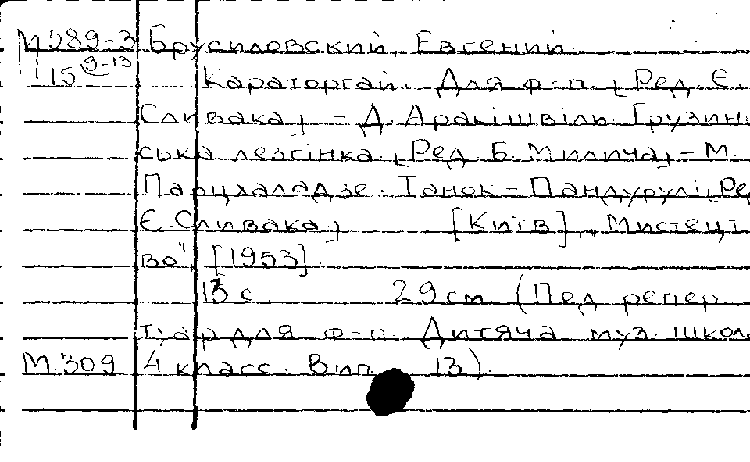 М289-3 Брусиловский, Евгений
15 9-13 Караторгай. Для ф-п. [Ред. Є.
Сливака] - Д. Аракішвілі. Грузин-
ська лезгінка. [Ред. Б. Милича] - М.
Парцхаладзе. Танок - Пандурулі. [Ред.
Є. Сливака] [Київ] "Мистецт-
во" [1953]
13 с. 29 см (Пед. репер-
туар для ф-п. Дитяча муз. школа
М 309 4 класс. Вип. 13).